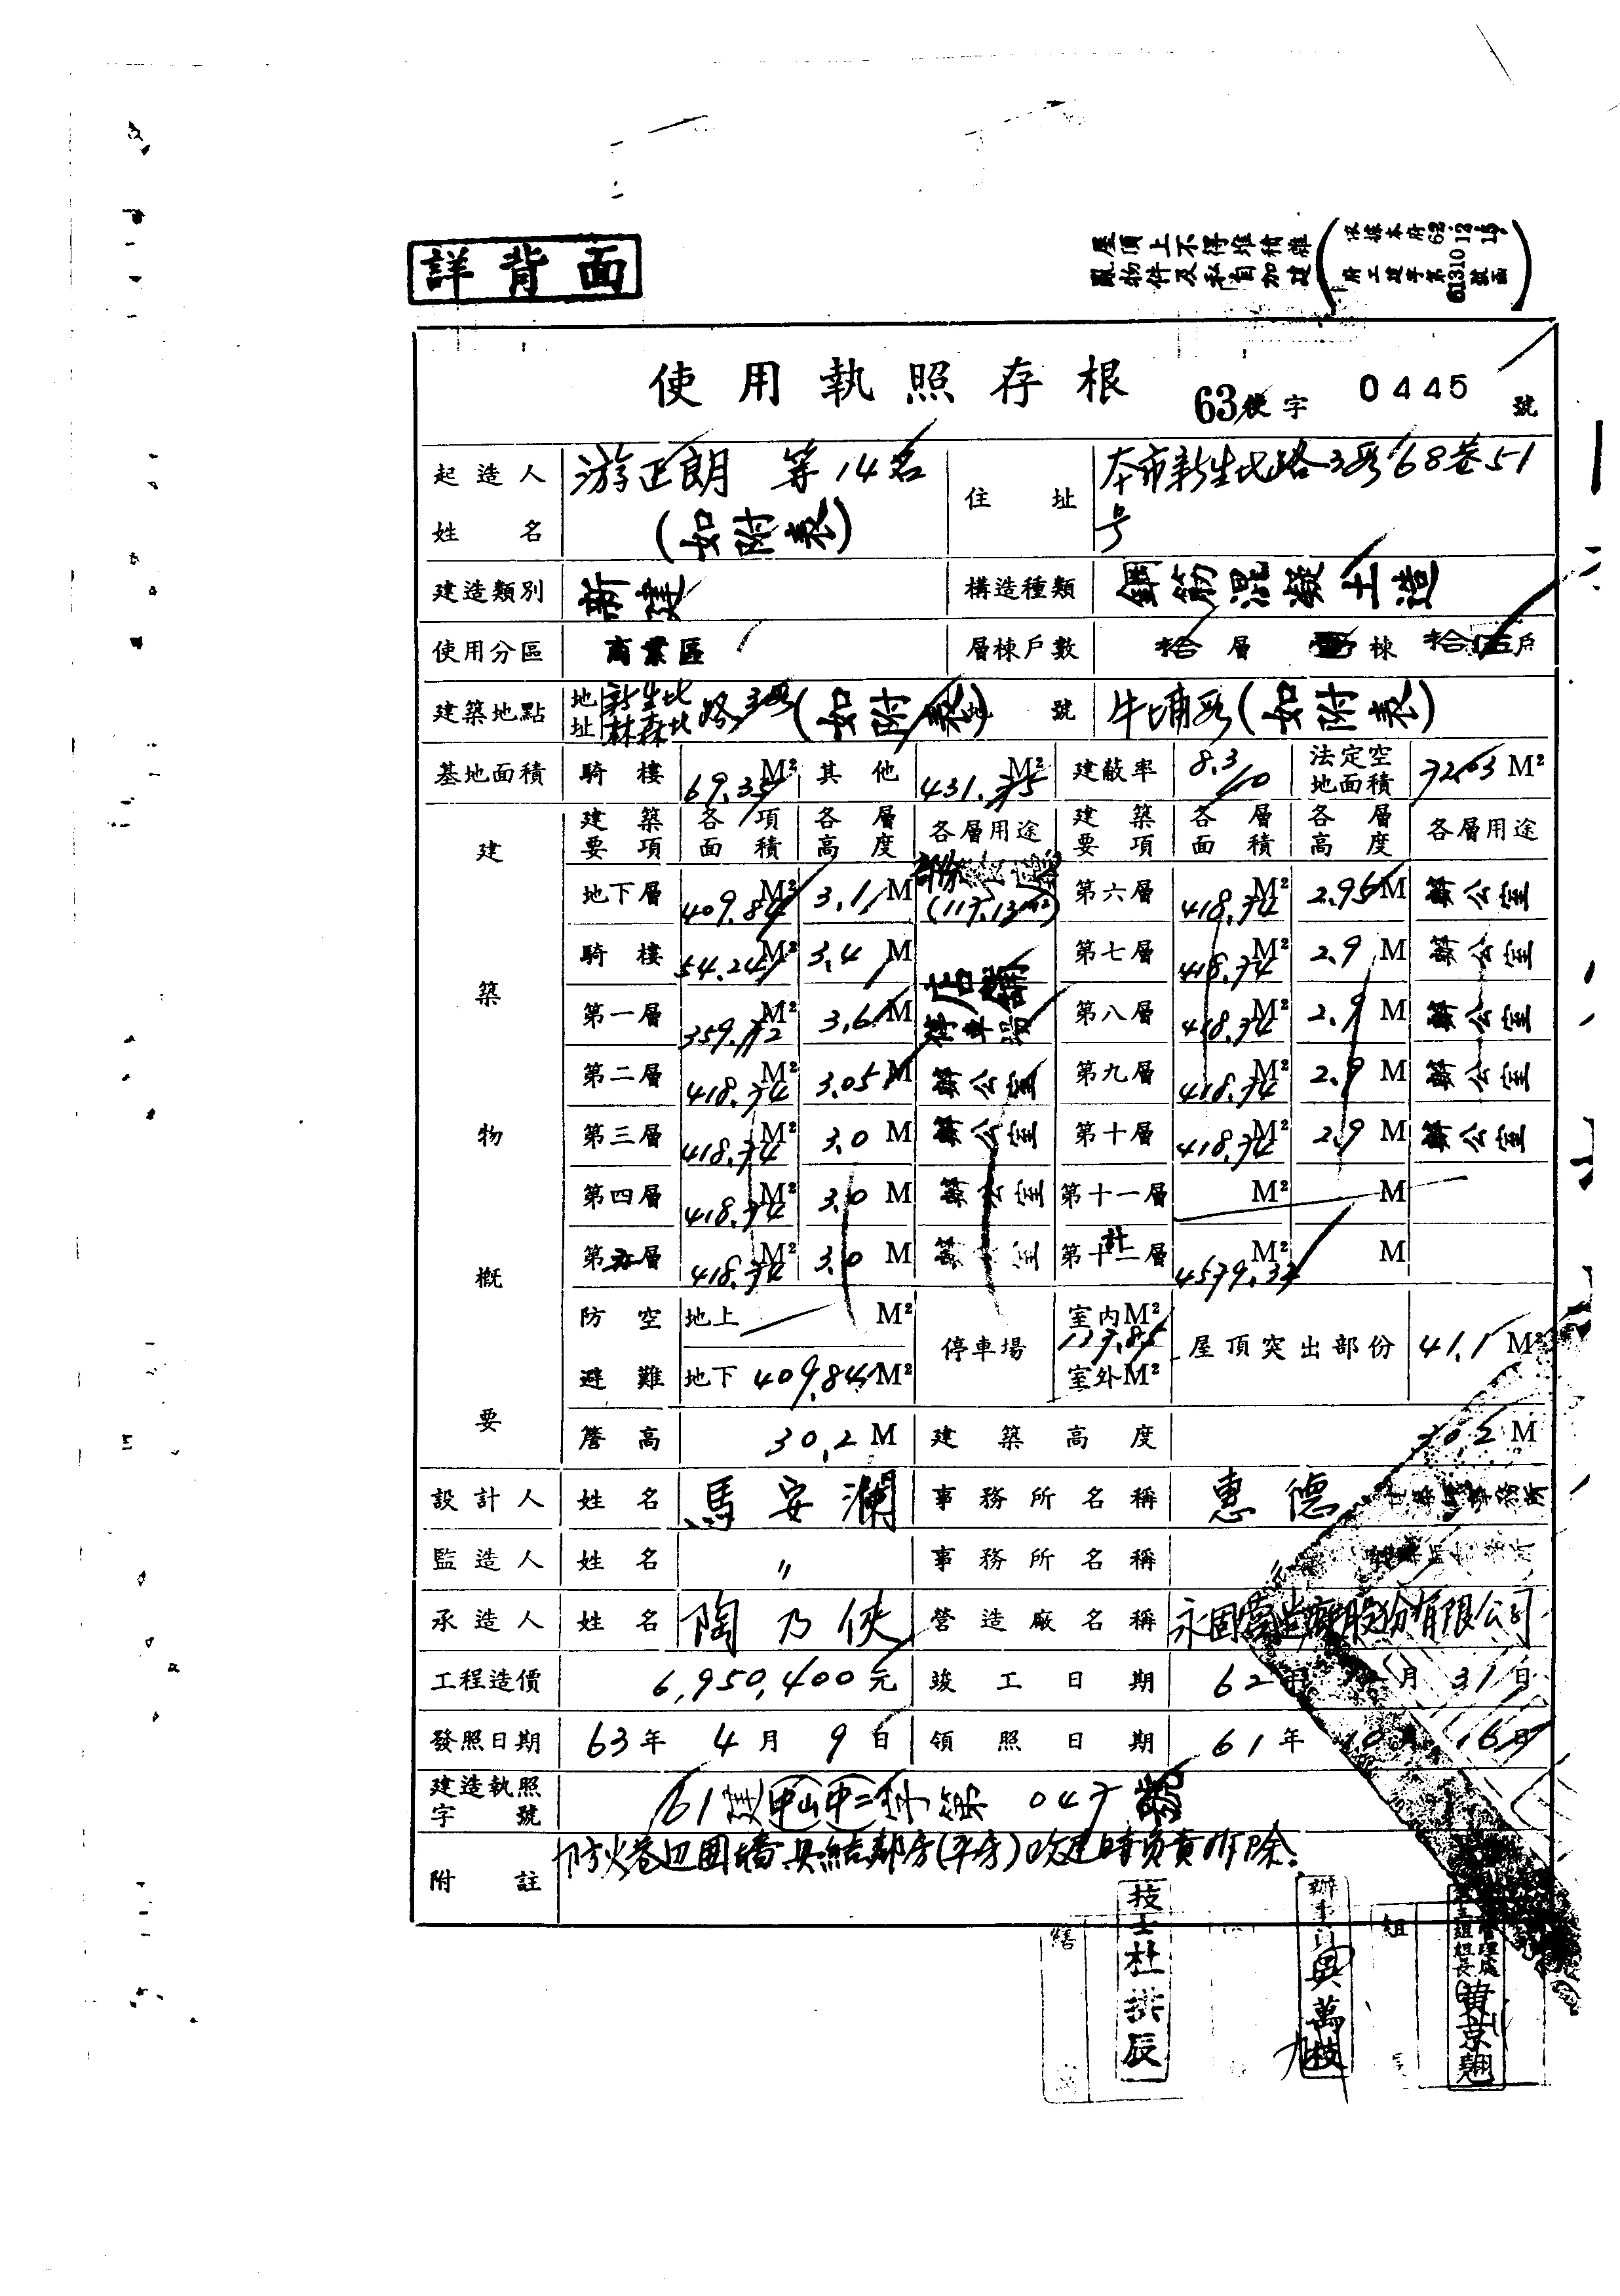 詳背面
屋頂上不得堆積雜
亂物件及私自加建
依據本府62.12.15.
府工建字第61310號函
使用執照存根 63使字 0445 號
起造人姓名 游正朗 等14名 (如附表) 住址 本市新生北路3段68巷51号
建造類別 新建 構造種類 鋼筋混凝土造
使用分區 商業區 層棟戶數 拾層 棟 拾伍戶
建築地點 地址 新生北 林森北 路3段 (如附表) 地號 牛埔段(如附表)
基地面積 騎樓 69.35 M² 其他 431.75 M² 建蔽率 8.3/10 法定空地面積 72.63 M²
建築物概要
建築要項 各項面積 各層高度 各層用途 建築要項 各層面積 各層高度 各層用途
地下層 409.84 M² 3.1 M 部份 (117.13M²) 第六層 418.74 M² 2.95 M 辦公室
騎樓 54.24 M² 3.4 M 第七層 418.74 M² 2.9 M 辦公室
第一層 359.72 M² 3.6 M 店舖 停車場 第八層 418.74 M² 2.9 M 辦公室
第二層 418.74 M² 3.05 M 辦公室 第九層 418.74 M² 2.9 M 辦公室
第三層 418.74 M² 3.0 M 辦公室 第十層 418.74 M² 2.9 M 辦公室
第四層 418.74 M² 3.0 M 辦公室 第十一層 M² M
第五層 418.74 M² 3.0 M 辦公室 第十二層 計 M² M
防空避難 地上 M² 停車場 室內M² 137.85 屋頂突出部份 41.1 M²
地下 409.84 M² 室外M²
簷高 30.2 M 建築高度 30.2 M
設計人 姓名 馬安瀾 事務所名稱 惠德
監造人 姓名 〃 事務所名稱 〃
承造人 姓名 陶乃俠 營造廠名稱 永固營造廠股份有限公司
工程造價 6,950,400元 竣工日期 62年 月31日
發照日期 63年4月9日 領照日期 61年10月16日
建造執照字號 61建(中山)(中二)字第 047 號
附註 防火巷迎圍牆具結鄰房(平房)改建時負責拆除.
技士杜洪辰
辦事員吳萬枝
組
黃京翹